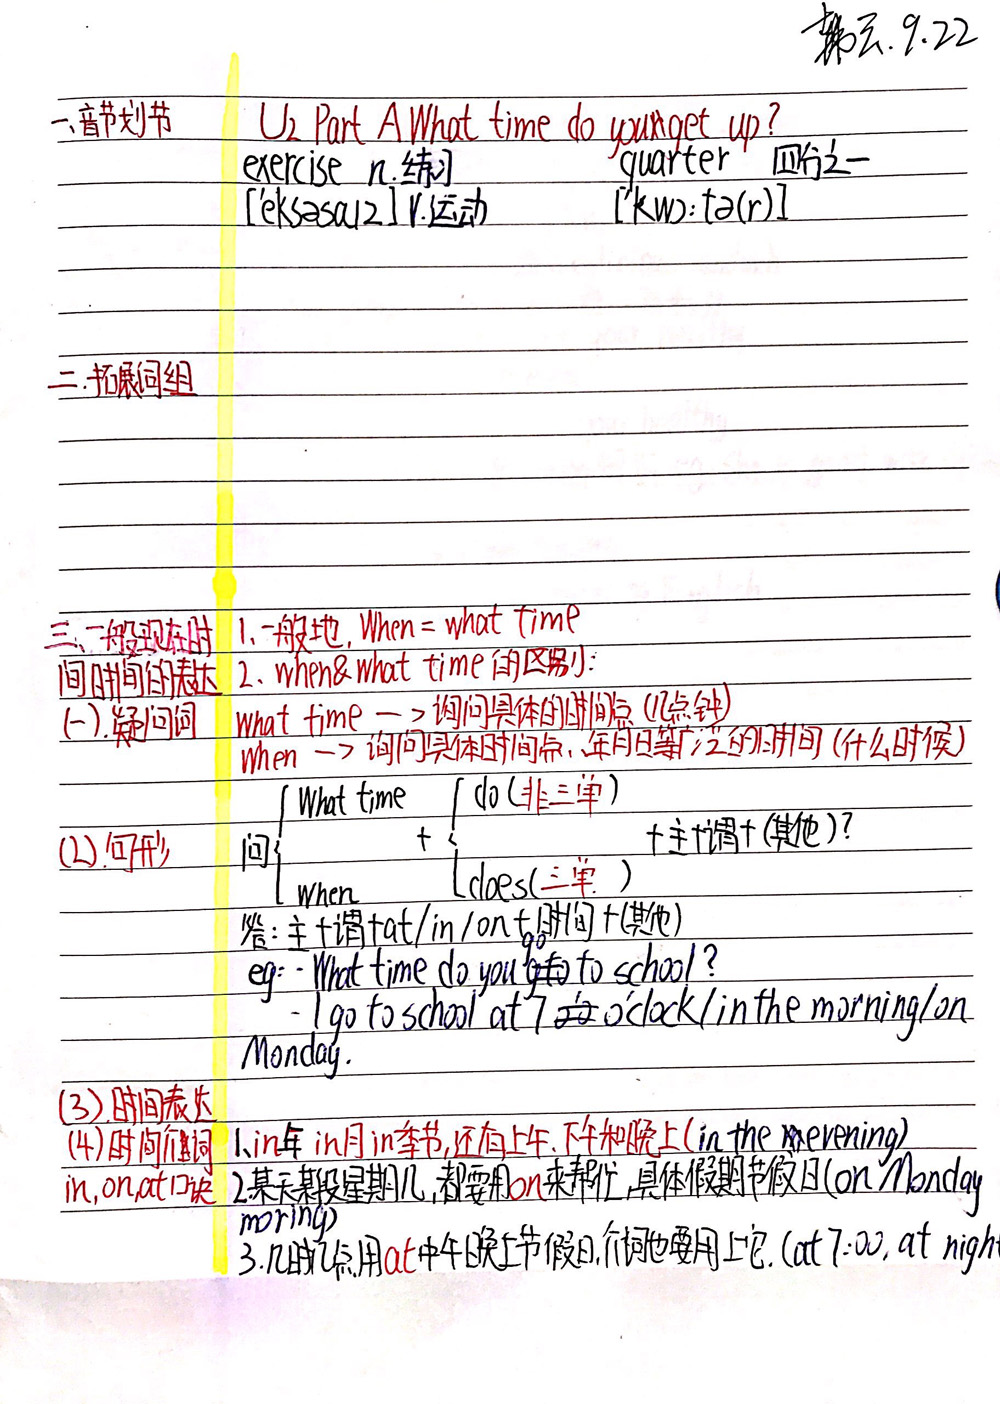 韩云.9.22
一、音节划节 U2 Part A What time do you get up?
exercise n.练习 quarter 四分之一
['eksəsaɪz] v.运动 ['kwɔ:tə(r)]
二.拓展词组
三、一般现在时 1、一般地,When = what time
间时间的表达 2、when&what time的区别:
(一).疑问词 what time —> 询问具体的时间点(几点钟)
when —> 询问具体时间点、年月日等广泛的时间(什么时候)
What time do(非三单)
(2).句形 问 + +主+谓+(其他)?
When does(三单)
答:主+谓+at/in/on+时间+(其他)
eg:-What time do you go to school?
-I go to school at 7 o'clock/in the morning/on
Monday.
(3).时间表达
(4)时间介词 1.in年 in月 in季节,还有上午.下午和晚上(in the evening)
in,on,at口诀 2.某天某段星期几,都要用on来帮忙,具体假期节假日(on Monday
moring)
3.几时几点用at中午晚上节假日,介词也要用上它.(at 7:00, at night